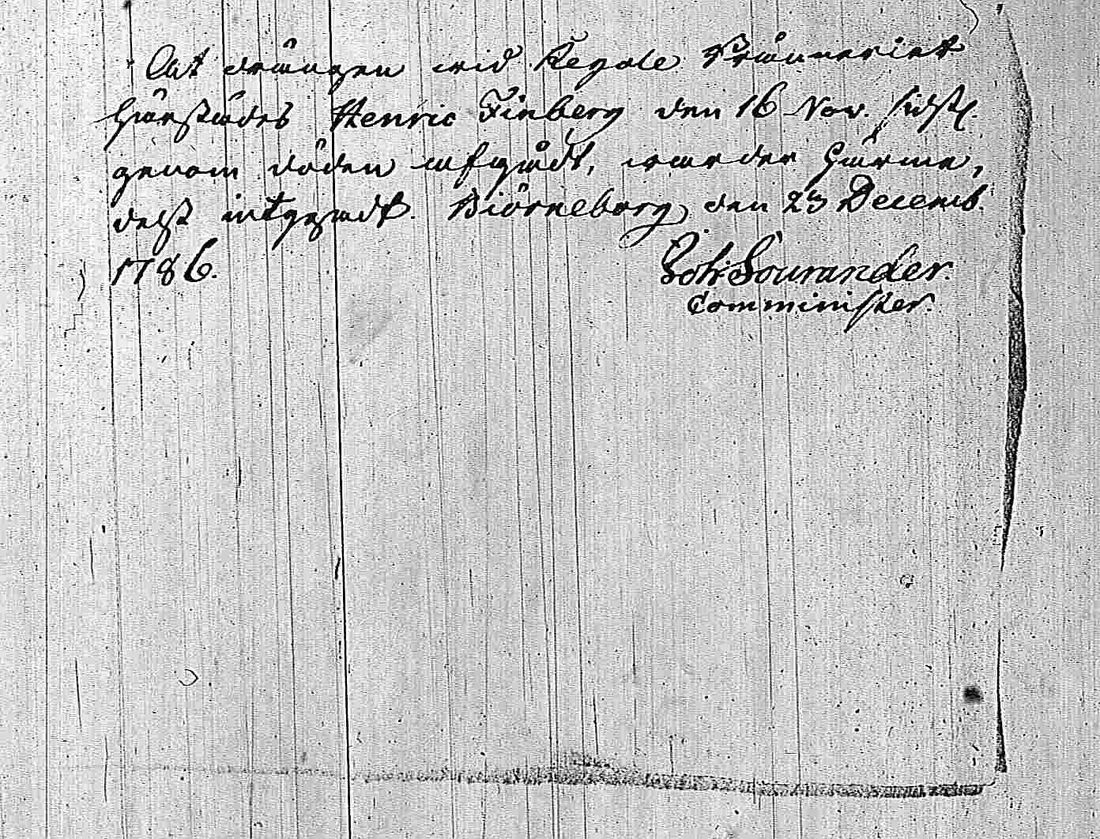 At drängen wid Regale Bränneriet
härstädes Henric Finberg den 16 Nov. sidstl.
genom döden afgådt, warder härme,
delst intygadt. Biörneborg den 23 Decemb.
1786. Joh Sourander.
Comminister.